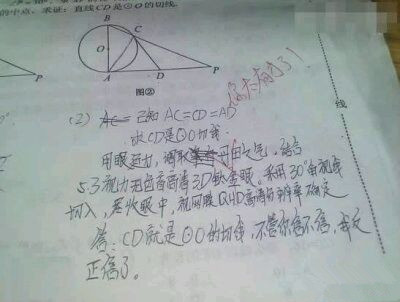 的中点。求证：直线CD是⊙O的切线.
B
C
O
P
A
D
P
图②
你太有才了！
线
(2) 已知 AC=CD=AD
求CD是⊙O切线
用眼过力，调取丹田之气，结合
5.3视力和包容高清3D钛金眼。采用30°角视线
切入，悉收眼中，视网膜QHD高清的辨率确定
答：CD就是⊙O的切线，不管你信不信，我反
正信了。